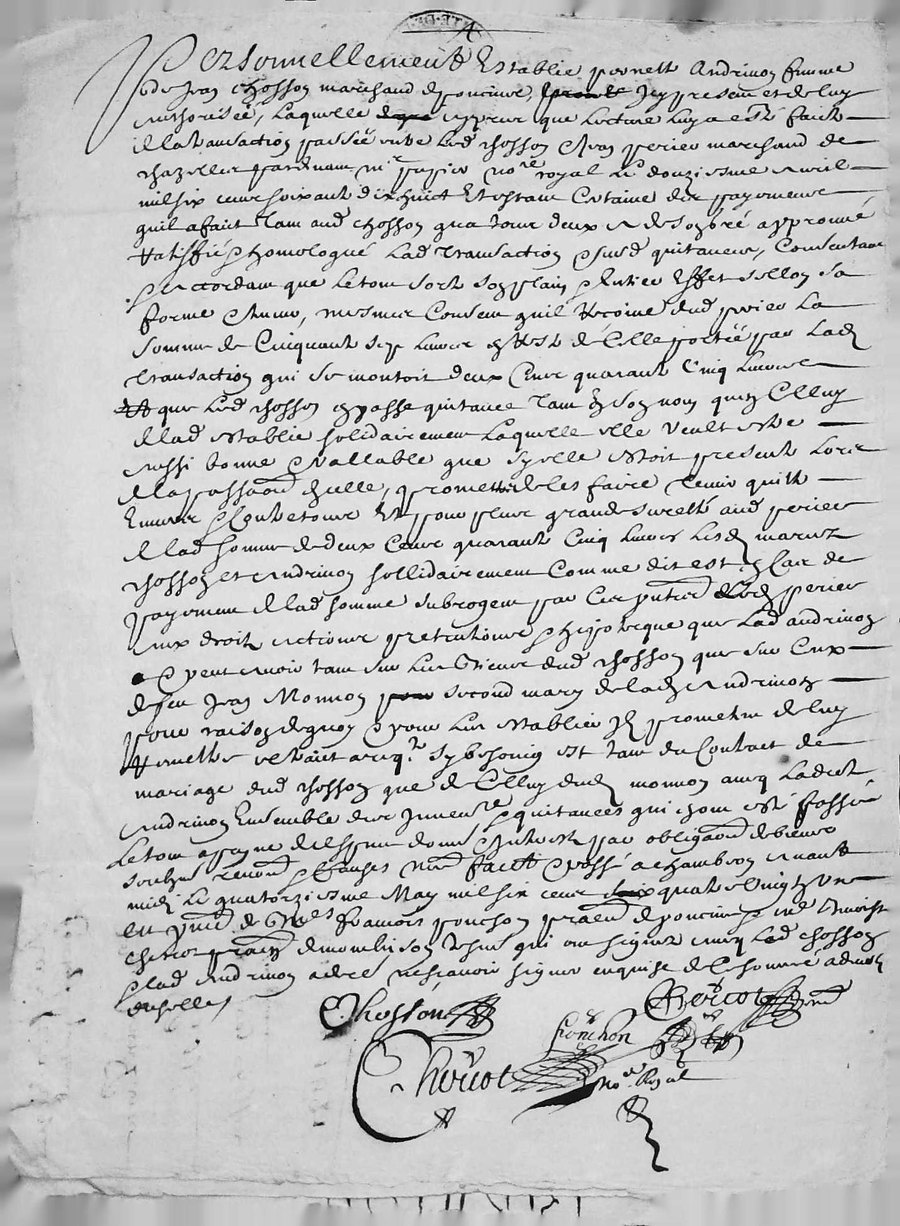 Personnellement Establie pernette Andrinon femme
de Jean Chosson marchand de poncins, icy presente et de luy
authorisée, Laquelle apres que Lecture luy a esté faicte
de la transaction passée entre led chosson & Jean perier marchand de
chazelles pardevant mr papier nore royal le douziesme avril
mil six cens soixante dix huict Et estant certaine des payements
quil a fait tant aud chosson qua tous deux a de son gré approuvé
Ratiffié & homologué Lad transaction & susd quitances, Consentant
& accordant que Letout sorte son plain & Entier Effet sellon sa
forme & teneur, mesmes Consent quil Recoive dud perier La
somme de Cinquante sept Livres de reste de Celle portée par Lad
transaction qui se montoit deux Cens quarante Cinq Livres
& que Led chosson en passe quitance tant en son nom quen Celluy
de lad establie solidairement Laquelle elle veult estre
aussi bonne & vallable que sy elle estoit presente Lors
de la passaon dicelle, promettant de les faire tenir quitte
Envers & Contre tous Et pour plus grande suretté aud perier
de lad somme de deux Cens quarante Cinq Livres Lesd mariez
chosson et Andrinon sollidairement Comme dit est
payement de lad somme subrogent par Ces pntes led perier
aux droits actions pretentions & hipoteque que Lad andrinon
& peut avoir tant sur Les Biens dud chosson que sur Ceux
de feu Jean Monnon second mary de lad Andrinon
pour raison de quoy & pour Les establis Ils promettent de luy
Remettre sy besoing est tant du Contract de
mariage dud chosson que de Celluy dud monnon avecq Ladicte
Andrinon Ensemble des Inventre & quitances qui sont esté passés
Letout a payne de tous despens domages & Interests par obligaon de biens
soubs renonons & Clauses necres faict & passé a chambeon avant
midy Le quatorziesme May mil six cens quatre vingt un
en pnce de Mes francois ponchon praticien de poncins &
chercot praticien de montbrison tesmoins qui ont signé avecq Led chosson
& lad Andrinon a dict ne scavoir signer enquise & sommé
dicelle
Chosson
Chercot
Ponchon
Chercot
nore Royal